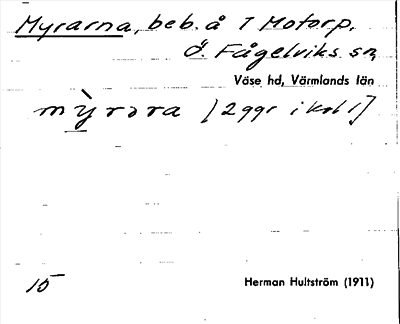 Myrarna, beb. å 7 Motorp,
Ö. Fågelviks sn,
Väse hd, Värmlands län
mỳrɔra [2 ggr i kol 1]
15
Herman Hultström (1911)